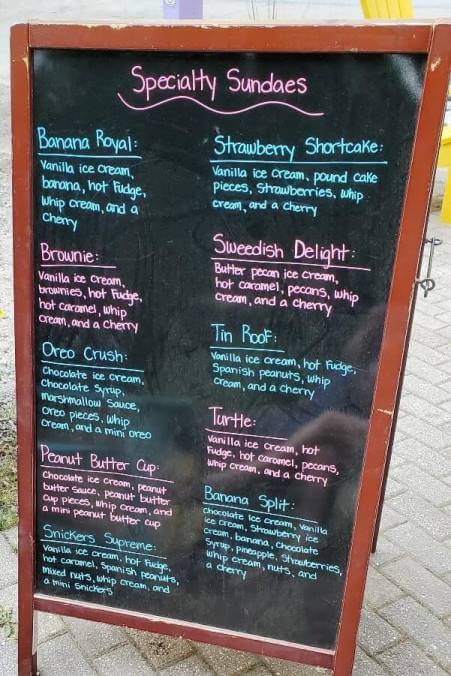 Specialty Sundaes
Banana Royal:
Vanilla ice cream,
banana, hot fudge,
whip cream, and a
cherry
Brownie:
Vanilla ice cream,
brownies, hot fudge,
hot caramel, whip
cream, and a cherry
Oreo Crush:
Chocolate ice cream,
Chocolate syrup,
marshmallow sauce,
oreo pieces, whip
cream, and a mini oreo
Peanut Butter Cup:
Chocolate ice cream, peanut
butter sauce, peanut butter
cup pieces, whip cream, and
a mini peanut butter cup
Snickers Supreme:
Vanilla ice cream, hot fudge,
hot caramel, Spanish peanuts,
mixed nuts, whip cream, and
a mini Snickers
Strawberry Shortcake:
Vanilla ice cream, pound cake
pieces, Strawberries, whip
cream, and a cherry
Sweedish Delight:
Butter pecan ice cream,
hot caramel, pecans, whip
cream, and a cherry
Tin Roof:
Vanilla ice cream, hot fudge,
Spanish peanuts, whip
cream, and a cherry
Turtle:
Vanilla ice cream, hot
fudge, hot caramel, pecans,
whip cream, and a cherry
Banana Split:
Chocolate ice cream, vanilla
ice cream, Strawberry ice
cream, banana, chocolate
Syrup, pineapple, Strawberries,
whip cream, nuts, and
a cherry